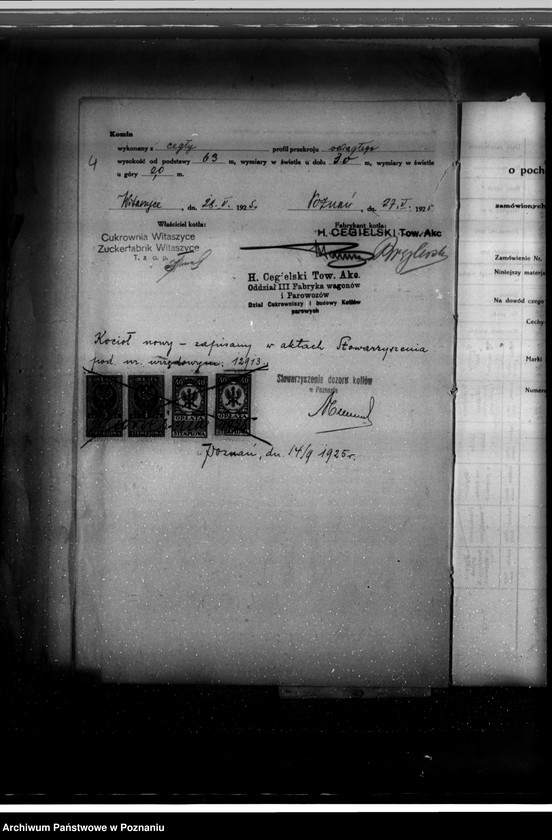 Komin
wykonany z cegły profil przekroju okrągły
4 wysokość od podstawy 63 m, wymiary w świetle u dołu 3,0 m, wymiary w świetle
u góry 2,0 m.
Witaszyce, dn. 28.V. 1925. Poznań, dn. 27.V. 1925
Właściciel kotła: Fabrykant kotła:
Cukrownia Witaszyce
Zuckerfabrik Witaszyce
T. z o. p.
H. CEGIELSKI Tow. Akc
H. Cegielski Tow. Akc.
Oddział III Fabryka wagonów
i Parowozów
Dział Cukrowniczy i budowy Kotłów
parowych
Kocioł nowy – zapisany w aktach Stowarzyszenia
pod nr. urzędowym: 12913.
Stowarzyszenie dozoru kotłów
w Poznaniu
40 40 40 40
OPŁATA OPŁATA
STEMPLOWA STEMPLOWA
Poznań, dn. 14/9 1925 r.
o poch
zamówionych
Zamówienie Nr.
Niniejszy materja
Na dowód czego
Cechy
Marki
Numera
Archiwum Państwowe w Poznaniu